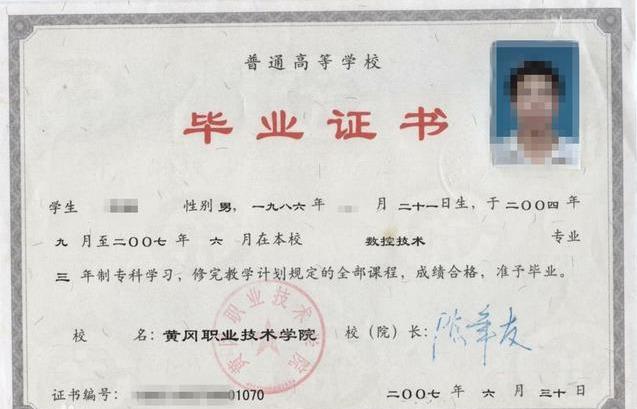 普通高等学校
毕业证书
学生 性别 男，一九八六年 月 二十一日生，于二〇〇四年
九 月至二〇〇七 年 六 月在本校 数控技术 专业
三 年制专科学习，修完教学计划规定的全部课程，成绩合格，准予毕业。
校 名：黄冈职业技术学院 校（院）长：
黄冈职业技术学院
证书编号： 01070 二〇〇七 年 六 月 三十日